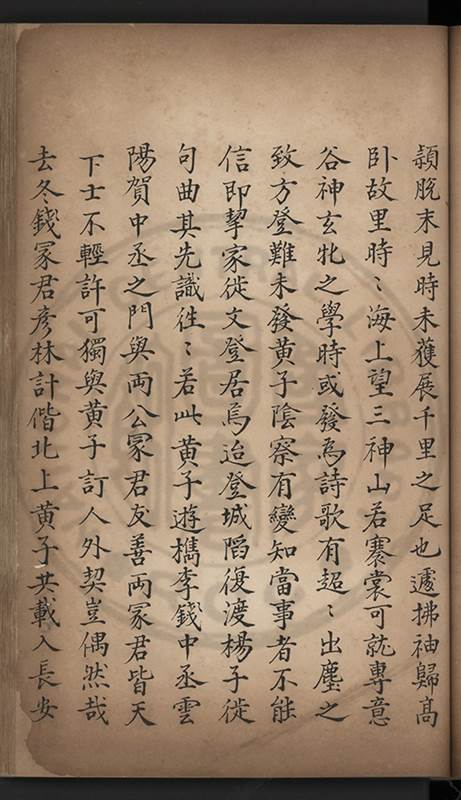 頴脫末見時未獲展千里之足也遽拂袖歸高
卧故里時〻海上望三神山若褰裳可就專意
谷神玄牝之學時或發爲詩歌有超〻出塵之
致方登難未發黄子陰察有變知當事者不能
信即挈家徙文登居焉迨登城陷復渡楊子徙
句曲其先識徃〻若此黄子遊檇李錢中丞雲
陽賀中丞之門與两公冡君友善两冡君皆天
下士不輕許可獨與黄子訂人外契豈偶然哉
去冬錢冡君彥林計偕北上黄子共載入長安